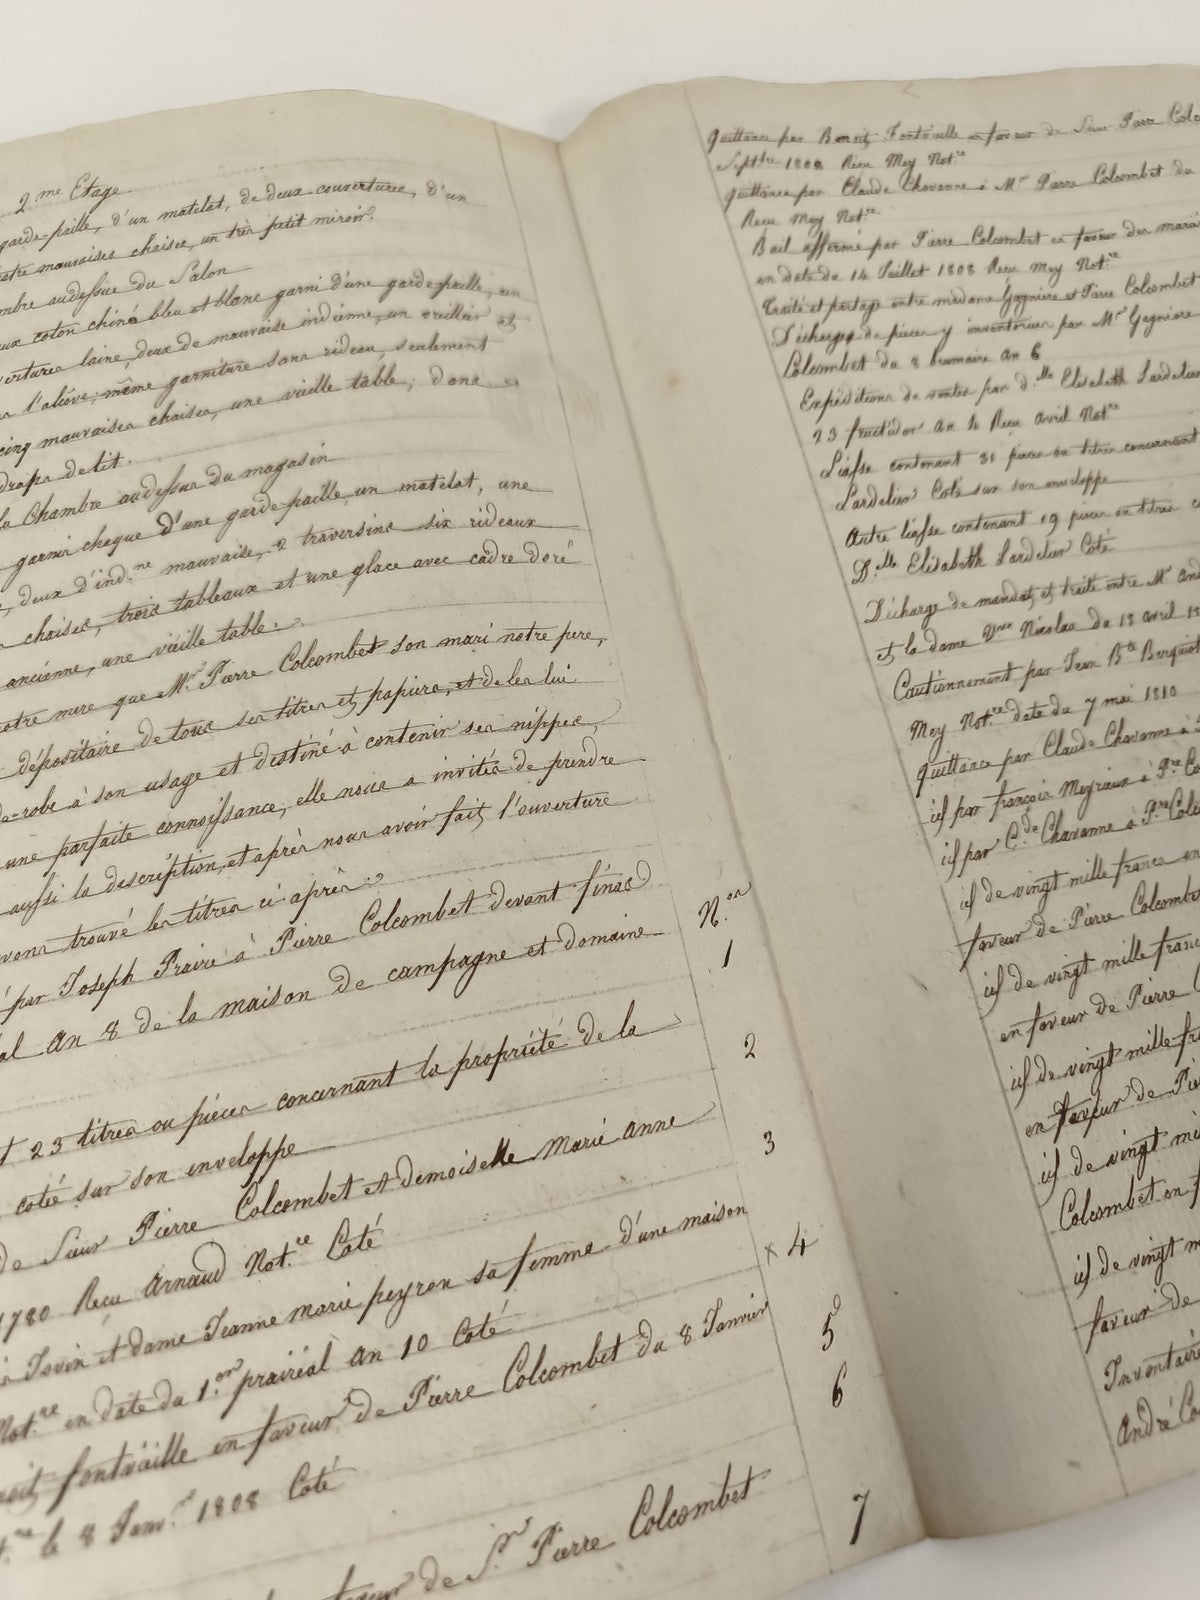 2.me Etage
garde-paille, d'un matelat, de deux couvertures, d'un
mauvaises chaises, un très petit miroir.
audessus du Salon
coton chiné bleu et blanc garni d'une garde paille, un
laine, deux de mauvaise indienne, un oreiller et
l'alcove, même garniture sans rideau, seulement
cinq mauvaises chaises, une vieille table, dans
draps de lit.
la Chambre audessus du magasin
garni d'une garde paille un matelat, une
deux d'ind.ne mauvaise, 2 traversins six rideaux
chaises, trois tableaux et une glace avec cadre doré
ancienne, une vieille table.
notre mere que Mr. Pierre Colcombet son mari notre pere,
dépositaire de tous ses titres et papiers, et de les lui
de-robe à son usage et destiné à contenir ses nippes,
une parfaite connoissance, elle nous a invités de prendre
aussi la description, et après nous avoir fait l'ouverture
trouvé les titres ci après
par Joseph Praire à Pierre Colcombet devant finas
an 8 de la maison de campagne et domaine
N.os
1
23 titres ou pièces concernant la propriété de la
coté sur son enveloppe
2
de Sieur Pierre Colcombet et demoiselle Marie anne
1780 Reçu Arnaud Not.re Coté
3
Jovin et dame Jeanne marie peyron sa femme d'une maison
Not.re en date du 1.er prairéal an 10 Coté
× 4
fontvieille en faveur de Pierre Colcombet du 8 Janvier
5
le 8 Janv.r 1808 Coté
6
de S.r Pierre Colcombet
7
quittance par Benoit Fontvieille en faveur de Sieur Pierre
Sept.bre 1808 Reçu Mey Not.re
quittance par Claude Chavanne à Mr Pierre Colcombet du
Reçu Mey Not.re
Bail affermé par Pierre Colcombet en faveur des
en date du 14 Juillet 1808 Reçu Mey Not.re
Traité et partage entre madame Gagniere et Pierre Colcombet
Décharges de pieces y inventoriées par Mr Gagniere
Colcombet du 8 brumaire an 6
Expéditions de ventes par d.lle Elisabeth Lardelier
23 fructidor an 4 Reçu avril Not.re
Liasse contenant 31 pieces ou titres concernant
Lardelier Coté sur son enveloppe
Autre liasse contenant 19 pieces ou titres
D.lle Elisabeth Lardelier Coté
Décharge de mandat et traité entre Mr
et la dame Vve Nicolas du 13 avril
Cautionnement par Jean B.te
Mey Not.re date du 7 mai 1810
quittance par Claude Chavanne à
id par françois Meyrieux à P.re
id par C.de Chavanne à P.re
id de vingt mille francs en
faveur de Pierre Colcombet
id de vingt mille francs
en faveur de Pierre
id de vingt mille
en faveur de
id de vingt
Colcombet en
id de vingt
faveur de
Inventaire
André